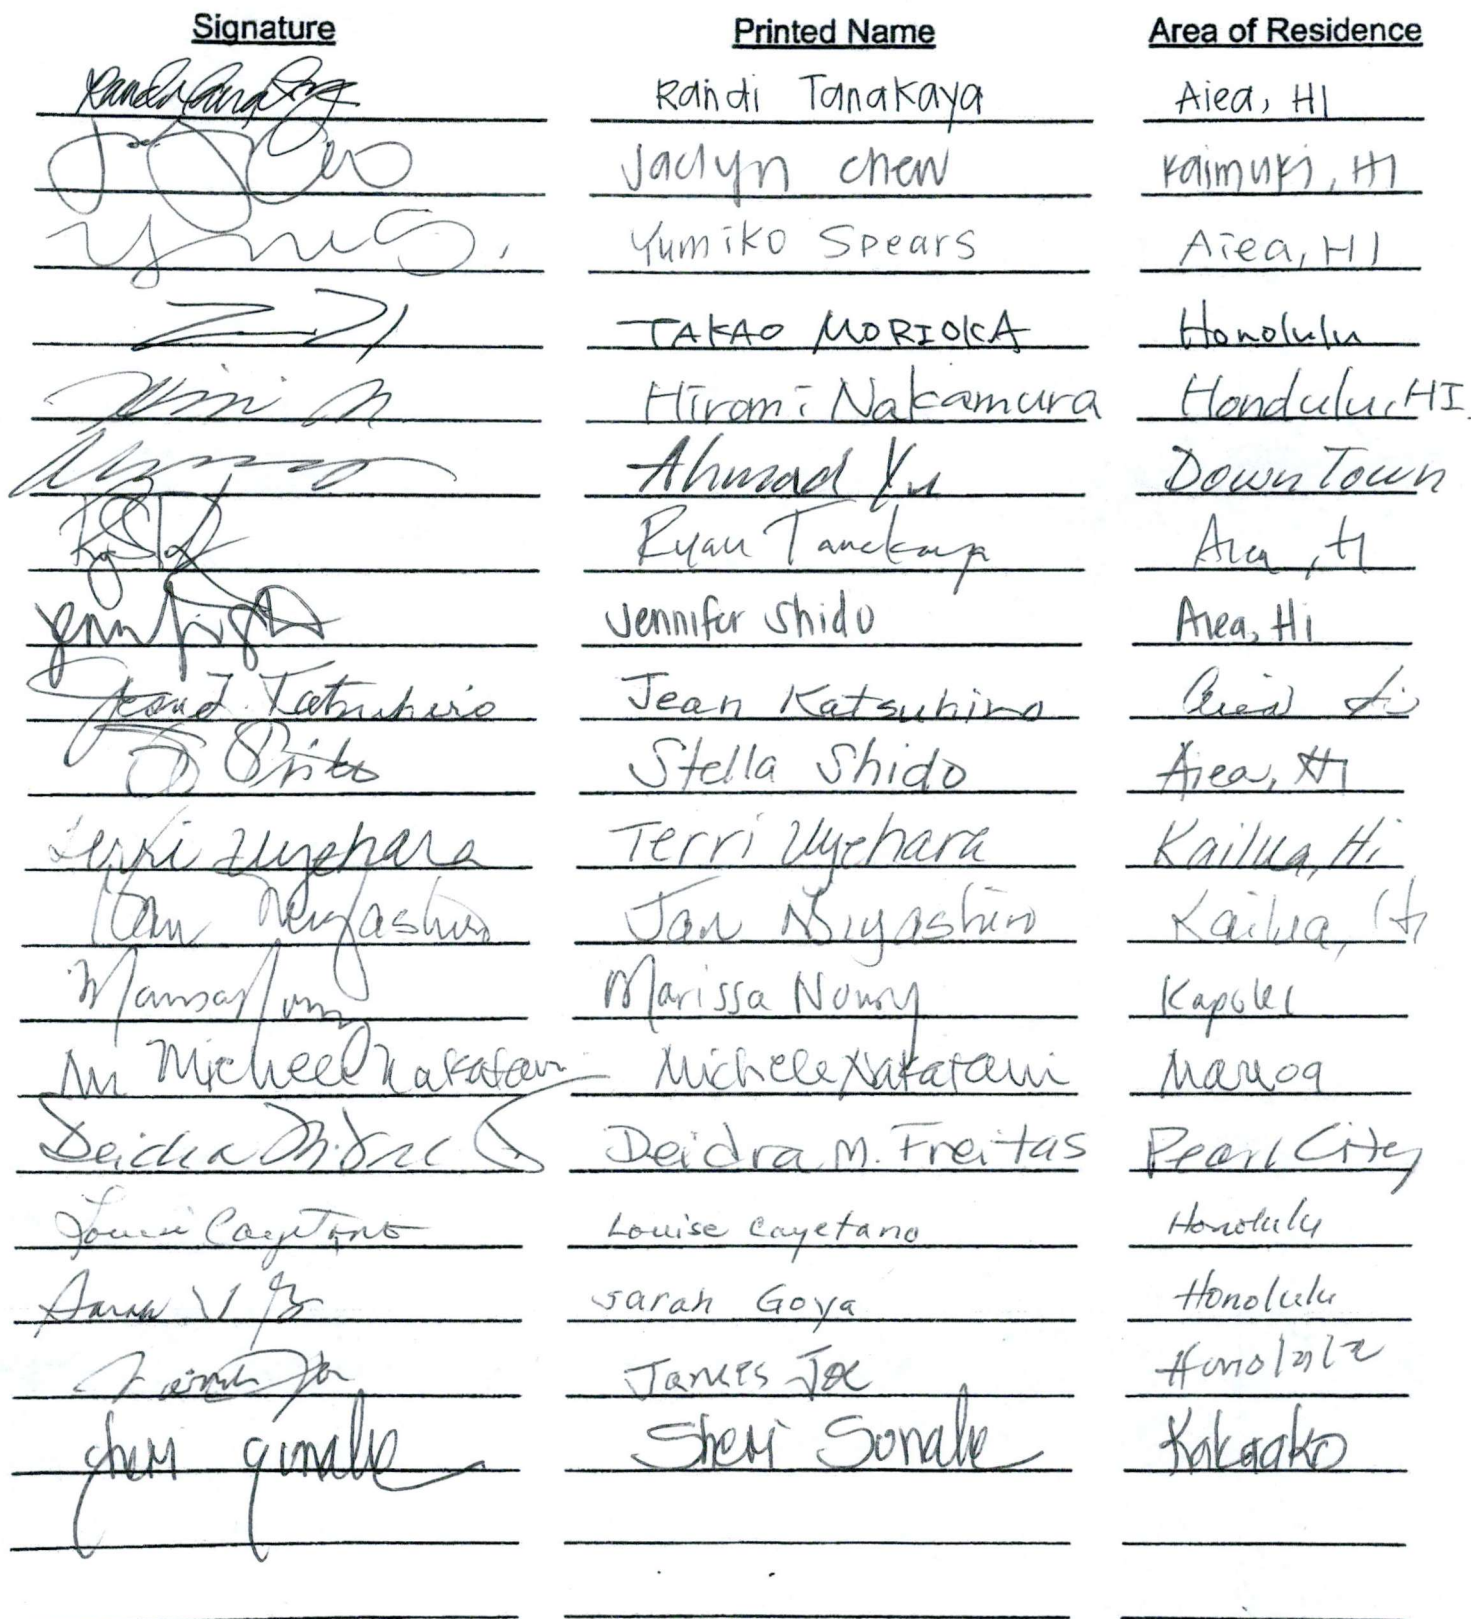 Signature Printed Name Area of Residence
Randi Tanakaya Aiea, HI
Jaclyn Chew Kaimuki, HI
Yumiko Spears Aiea, HI
TAKAO MORIOKA Honolulu
Hiromi Nakamura Honolulu, HI
Ahmad Yu DownTown
Ryan Tanakaya Aiea, HI
Jennifer Shido Aiea, Hi
Jean Katsuhiro Jean Katsuhiro Aiea Hi
Stella Shido Aiea, HI
Terri Uyehara Terri Uyehara Kailua, Hi
Jan Miyashiro Jan Miyashiro Kailua, HI
Marissa Kapolei
Michele Nakatani Michele Nakatani Manoa
Deidra M. Deidra M. Freitas Pearl City
Louise Cayetano Louise Cayetano Honolulu
Sarah Goya Honolulu
James Joe Honolulu
Sheri Sonake Sheri Sonake Kakaako